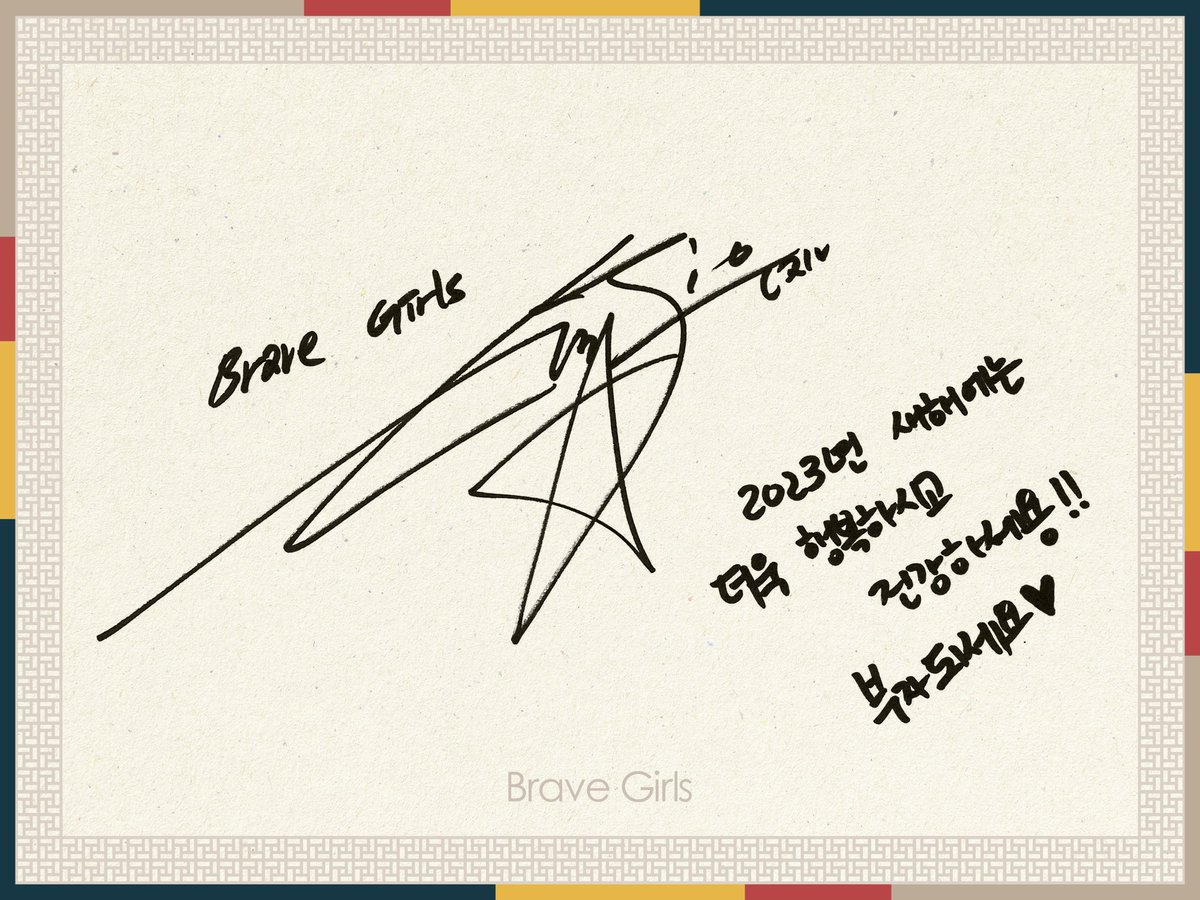 Brave Girls
2023년 새해에는
더욱 행복하시고
건강하세요!!
부자되세요♥
Brave Girls